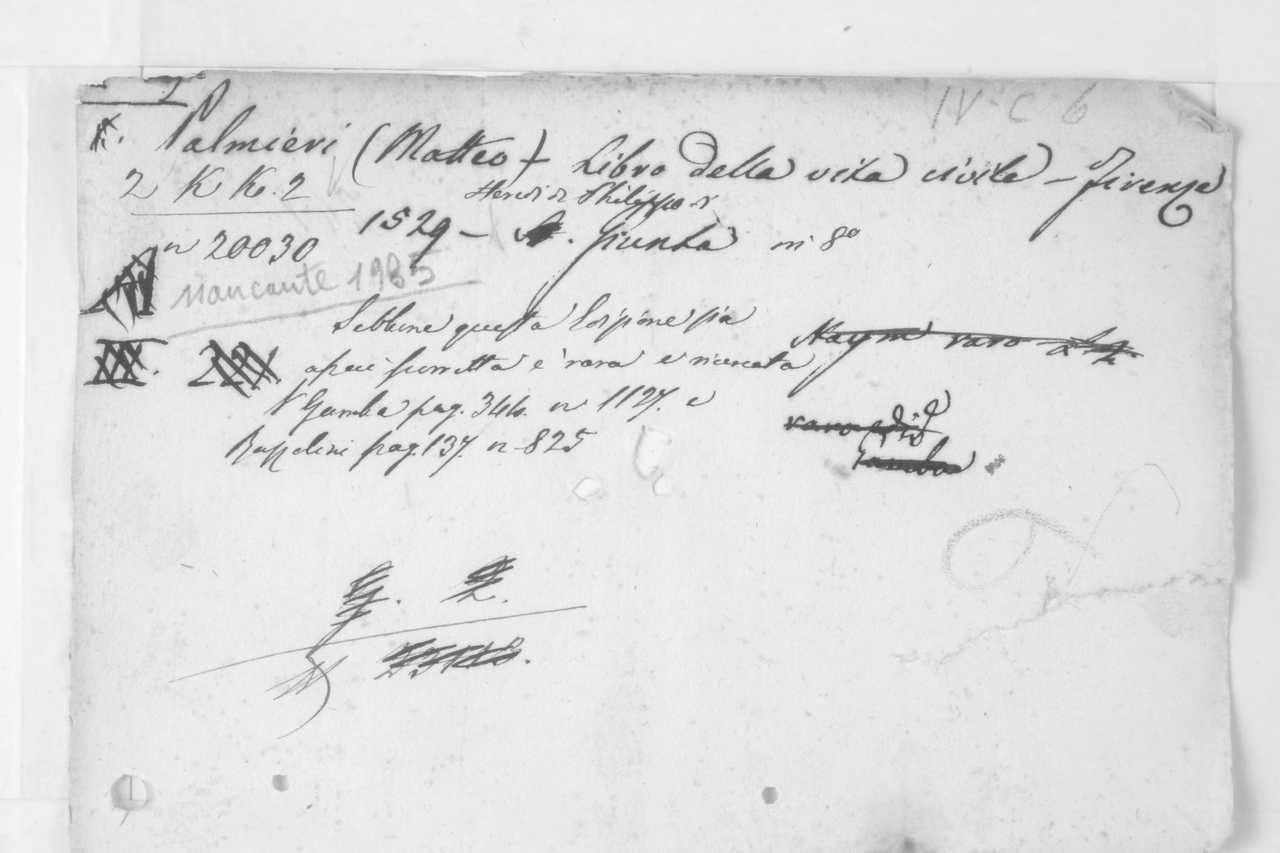 IV C 6
Palmieri (Matteo) Libro della vita civile - Firenze
2 K K. 2
Heredi di Philippo di
1529 - Giunta in 8º
n 20030
mancante 1985
Sebbene questa edizione sia
assai scorretta è rara e ricercata
V Gamba pag. 344. n 1127. e
pag. 137. n. 825
Haym raro
raro
Gamba